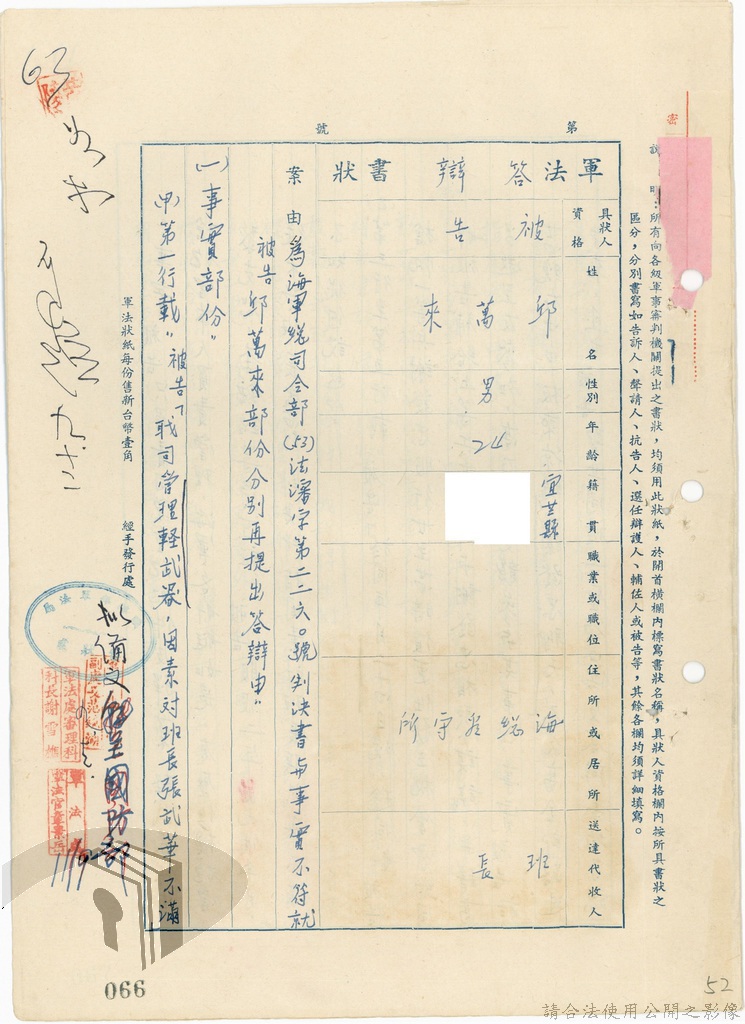 密
說明：所有向各級軍事審判機關提出之書狀，均須用此狀紙，於開首橫欄內標寫書狀名稱，具狀人資格欄內按所具書狀之
區分，分別書寫如告訴人、聲請人、抗告人、選任辯護人、輔佐人或被告等，其餘各欄均須詳細填寫。
第 號
軍法答辯書狀
具狀人資格 被告
姓名 邱萬來
性別 男
年齡 24
籍貫 宜兰縣
職業或職位
住所或居所 海總看守所
送達代收人 班長
案由 為海軍總司令部(53)法審字第二二六0號判決書与事實不符就
被告邱萬來部份分別再提出答辯由〃
(一)事實部份〃
(甲)第一行載〃被告「耽司管理軽武器，因素対班長張武華不滿
軍法狀紙每份售新台幣壹角 經手發行處
63
九.十二
擬備文
呈國防部
軍法處審理科
科長謝雪
066
52
請合法使用公開之影像